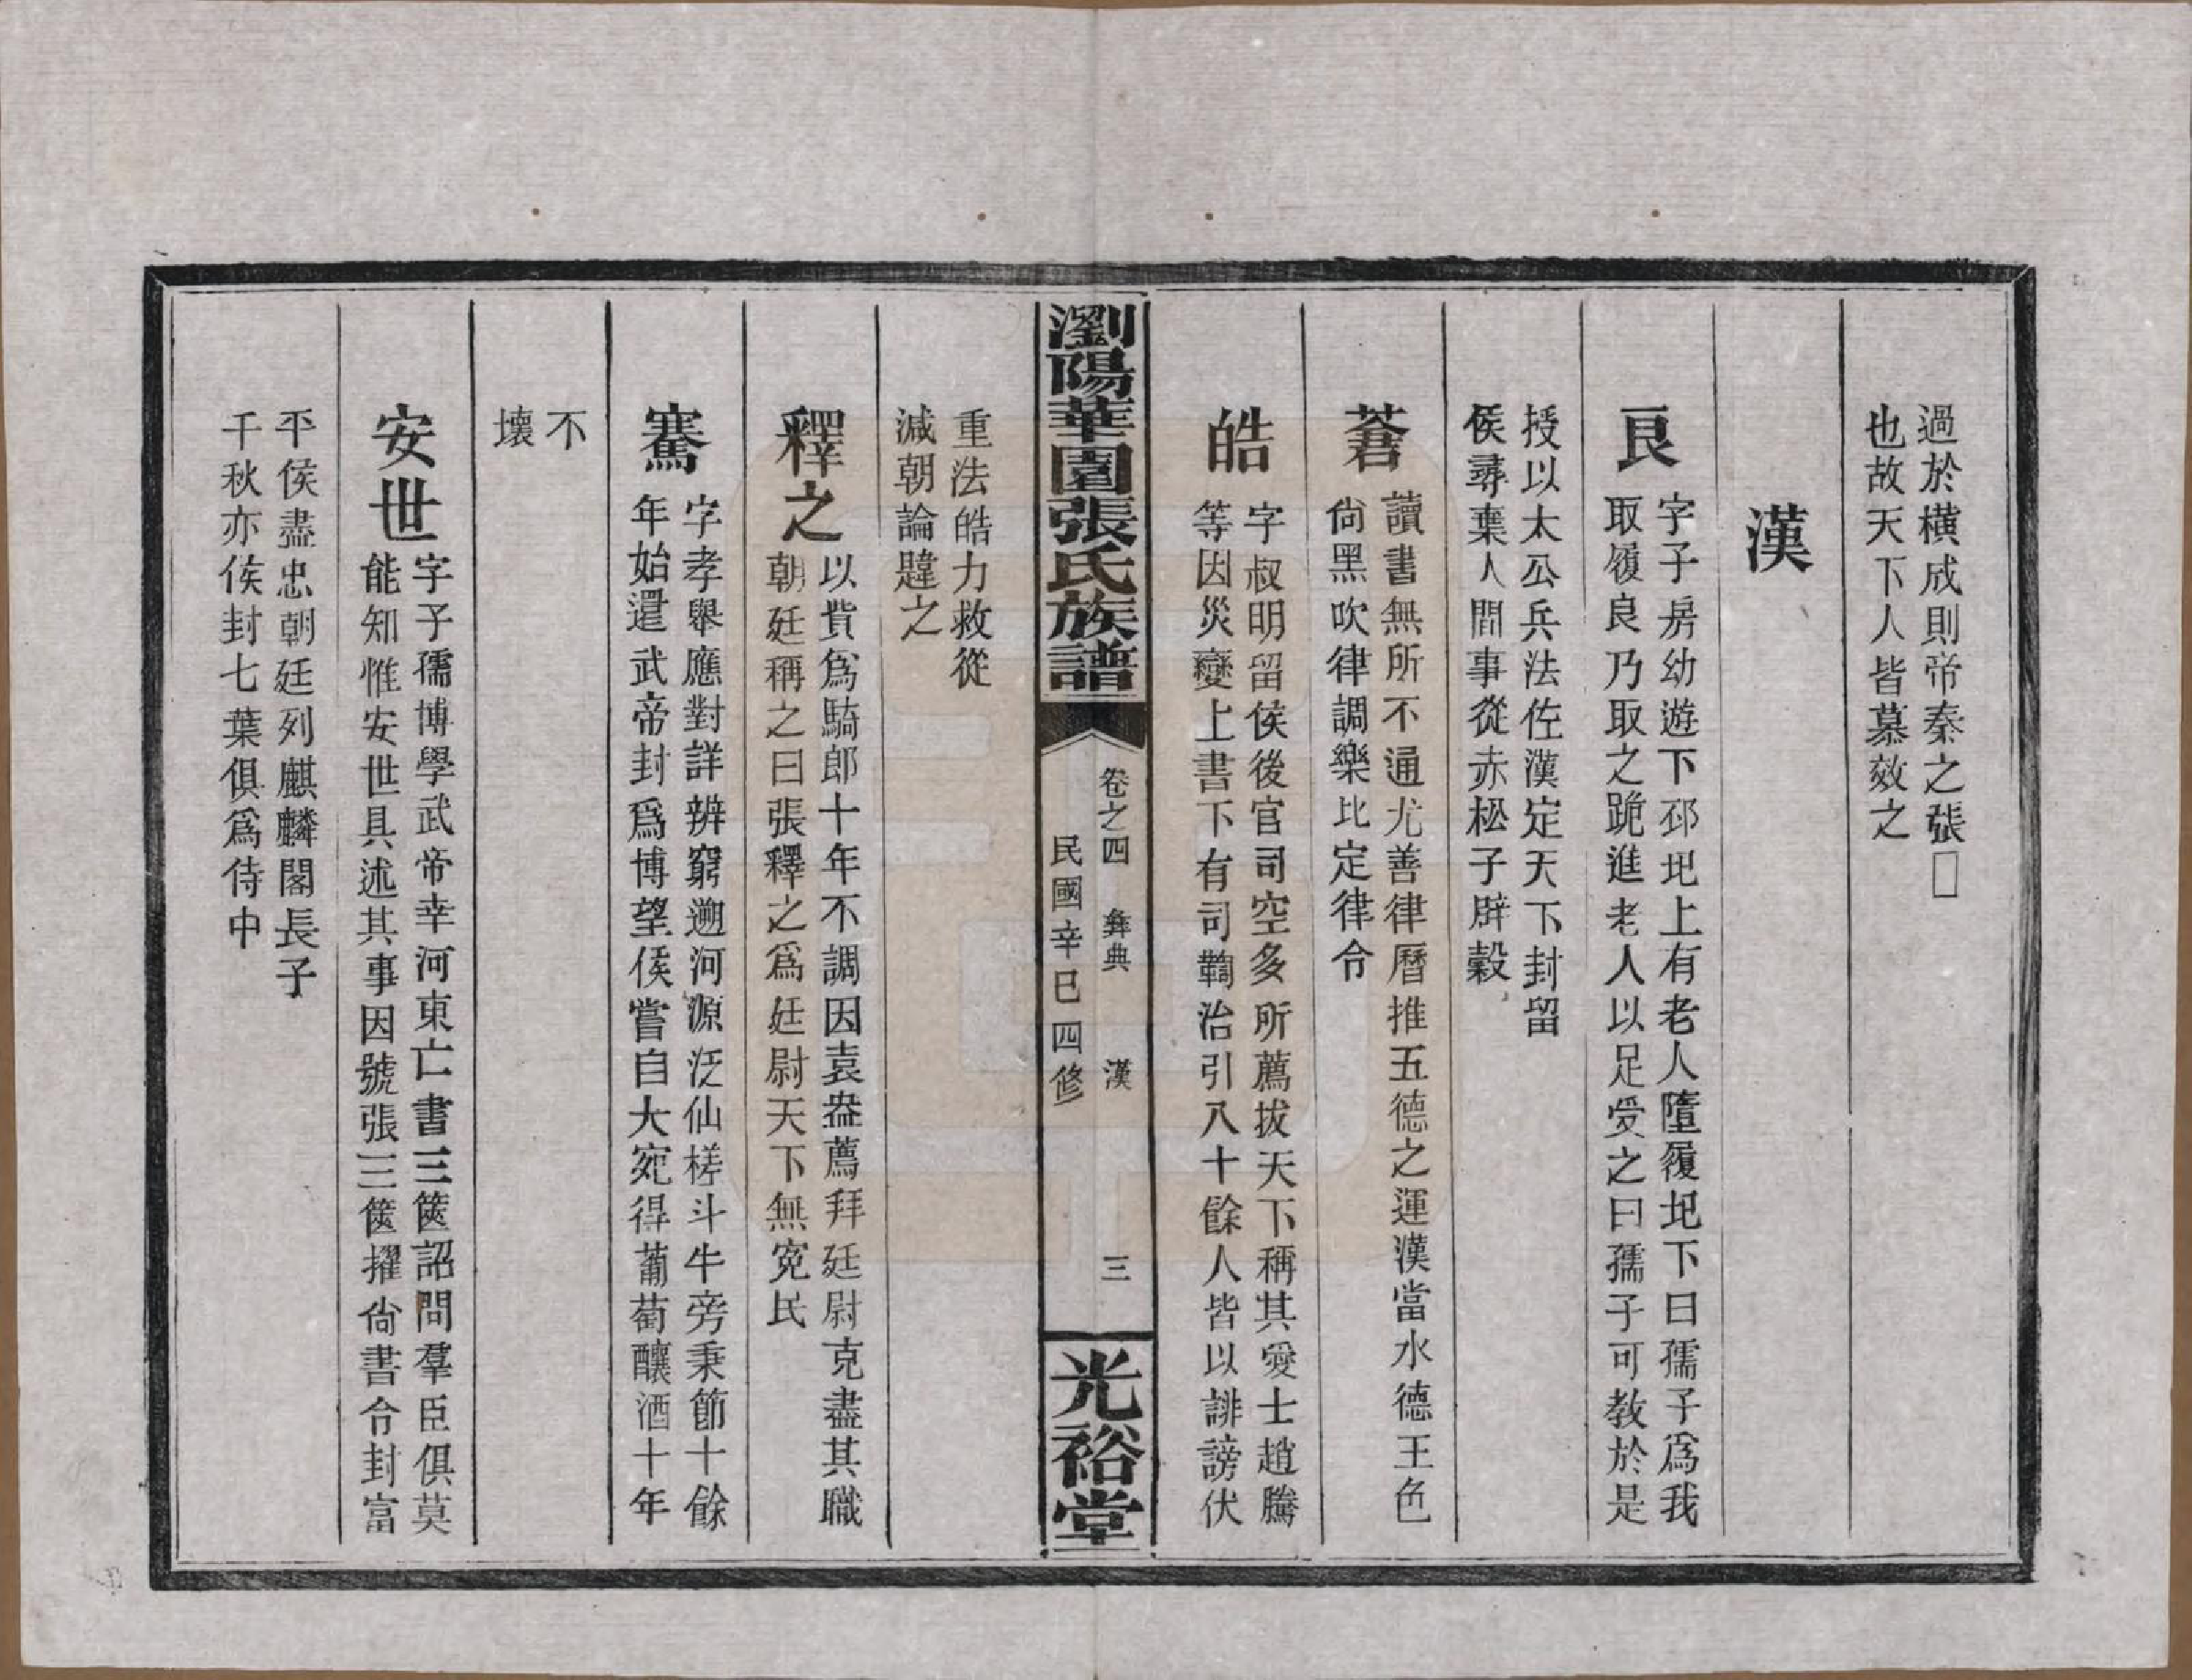 過於橫成則帝秦之張□
也故天下人皆慕效之
漢
良
字子房幼遊下邳圯上有老人墮履圯下曰孺子爲我
取履良乃取之跪進老人以足受之曰孺子可教於是
授以太公兵法佐漢定天下封留
侯尋棄人間事從赤松子辟穀
蒼
讀書無所不通尤善律曆推五德之運漢當水德王色
尙黑吹律調樂比定律令
皓
字叔明留侯後官司空多所薦拔天下稱其愛士趙騰
等因災變上書下有司鞫治引八十餘人皆以誹謗伏
瀏陽華園張氏族譜
卷之四 彝典 漢 三
民國辛巳四修
光裕堂
重法皓力救從
減朝論韙之
釋之
以貲爲騎郎十年不調因袁盎薦拜廷尉克盡其職
朝廷稱之曰張釋之爲廷尉天下無寃民
騫
字孝舉應對詳辨窮遡河源泛仙槎斗牛旁秉節十餘
年始還武帝封爲博望侯嘗自大宛得葡萄釀酒十年
不
壞
安世
字子孺博學武帝幸河東亡書三篋詔問羣臣俱莫
能知惟安世具述其事因號張三篋擢尙書令封富
平侯盡忠朝廷列麒麟閣長子
千秋亦侯封七葉俱爲侍中